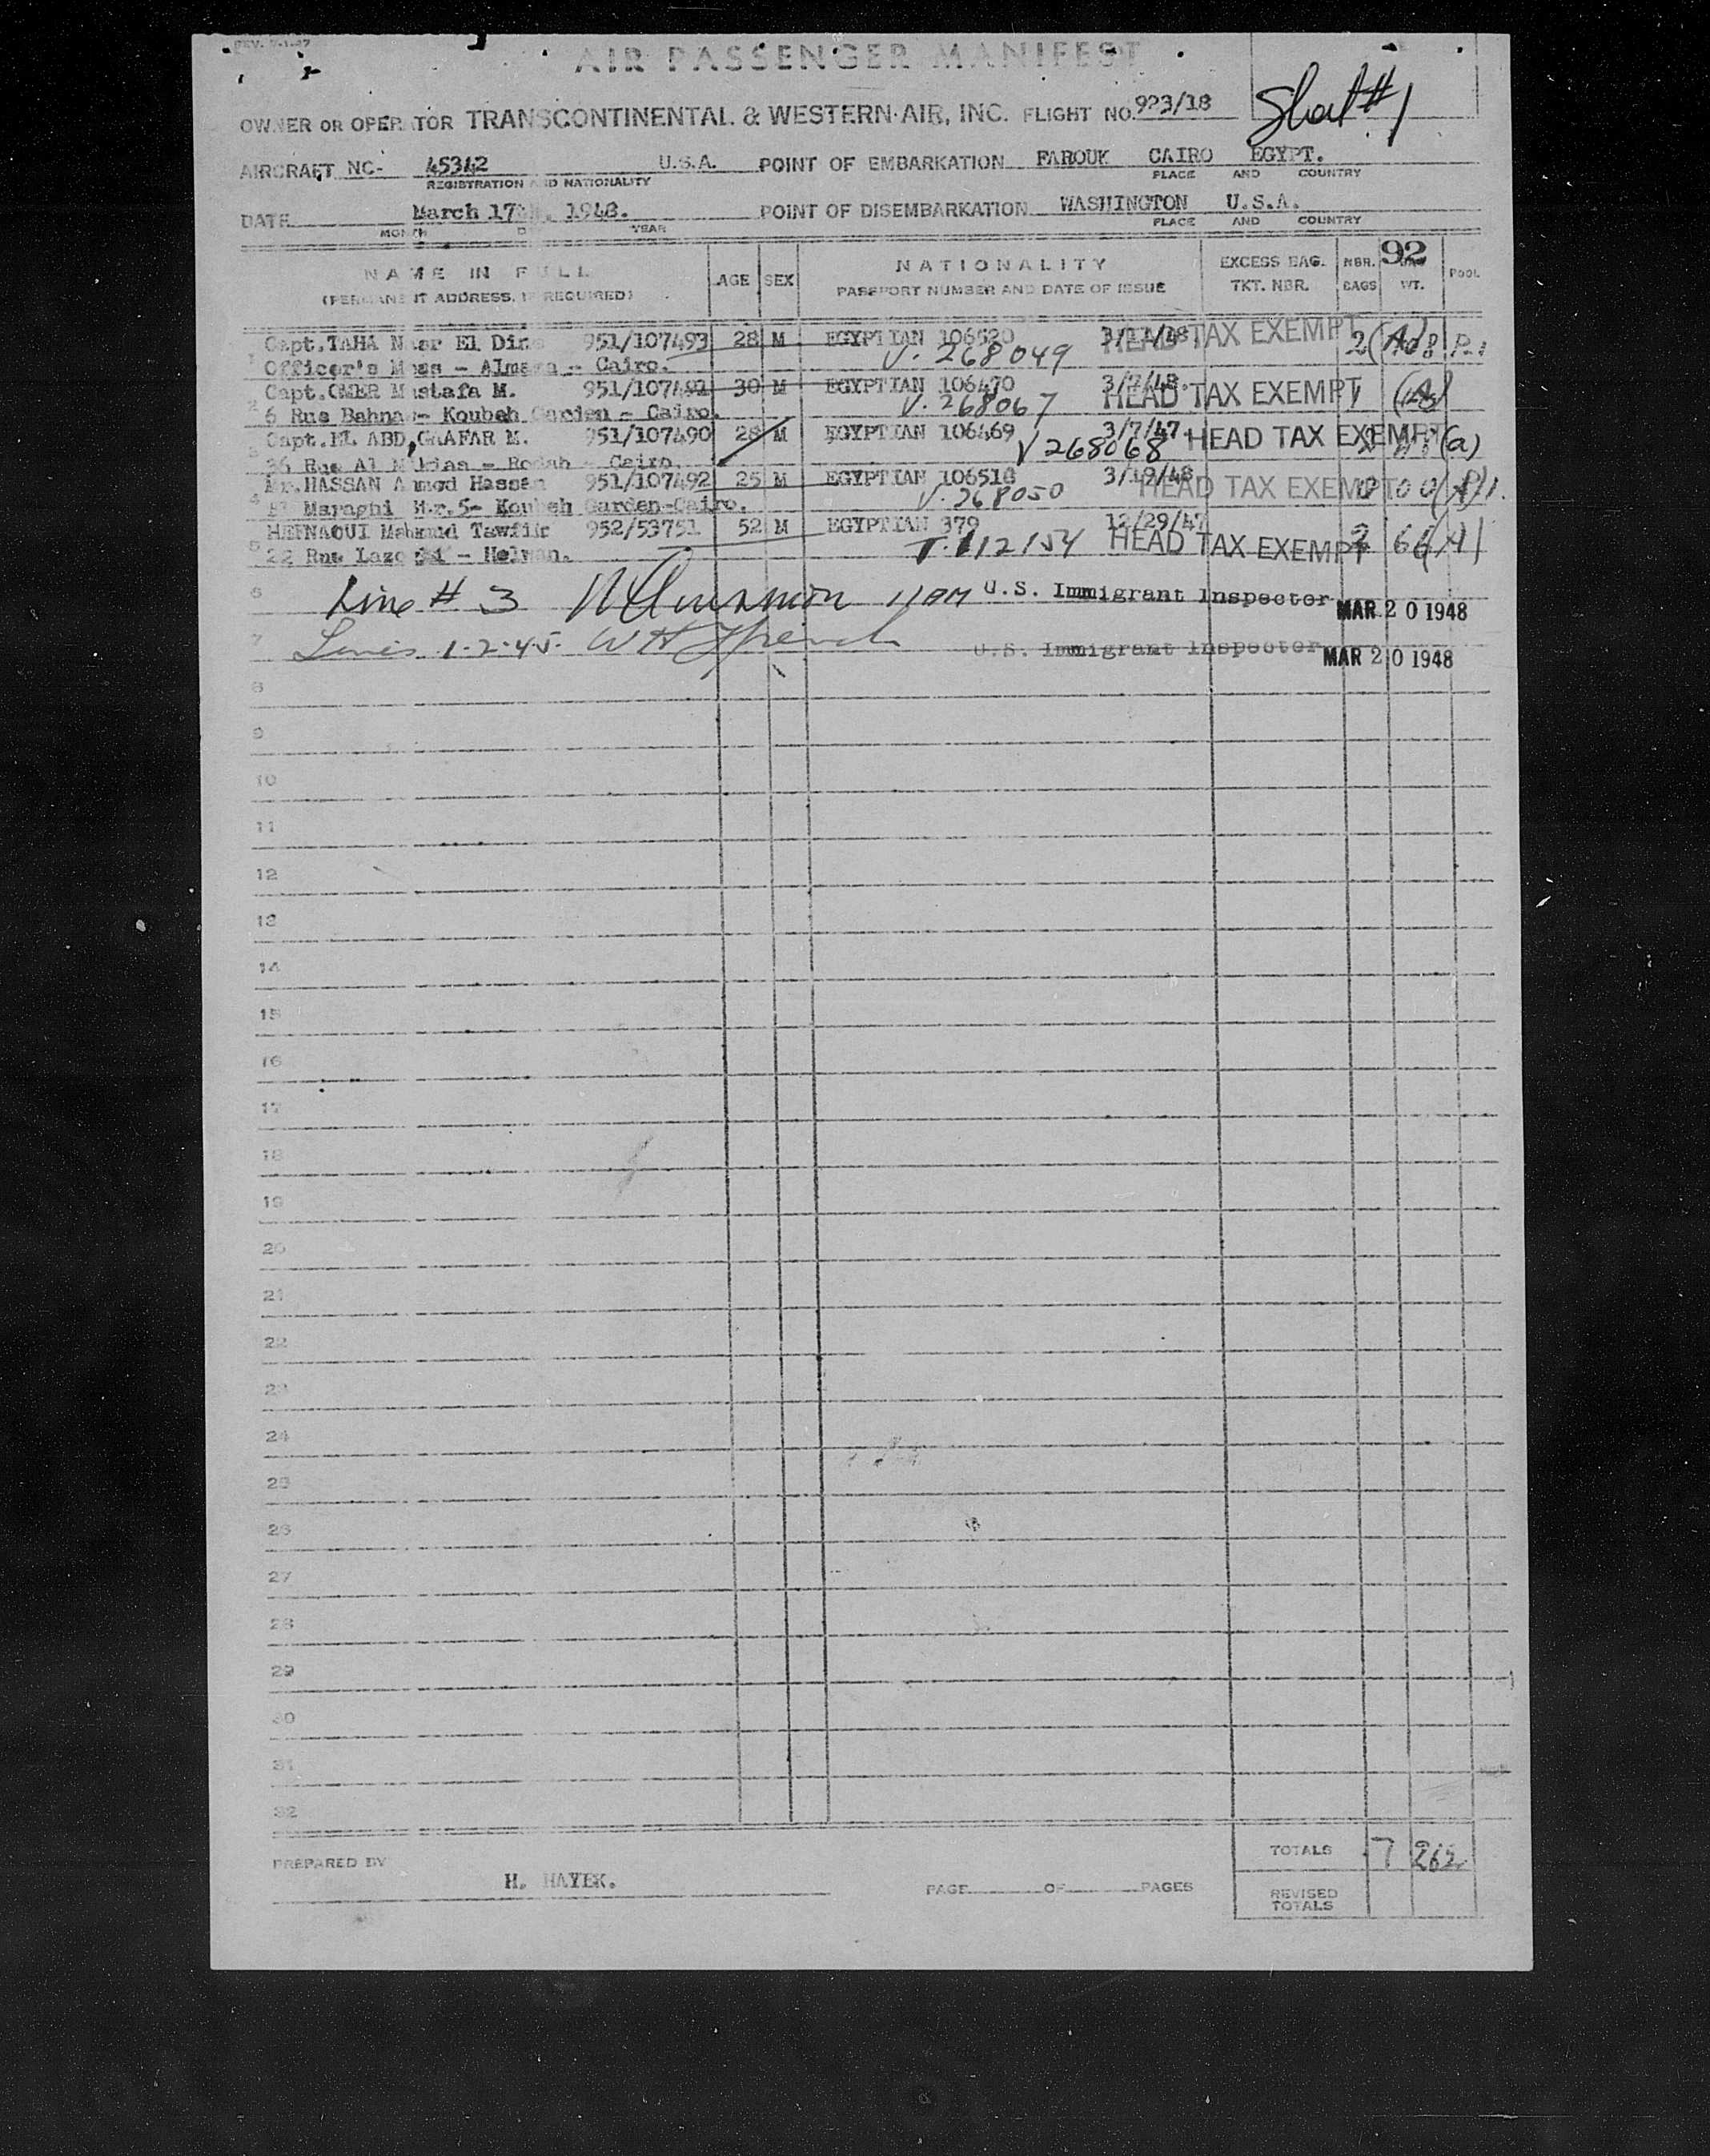 REV. 9-1-47
AIR PASSENGER MANIFEST
OWNER OR OPERATOR TRANSCONTINENTAL & WESTERN AIR, INC. FLIGHT NO. 923/18
Sheet #1
AIRCRAFT NC- 45342 U.S.A. POINT OF EMBARKATION FAROUK CAIRO EGYPT.
REGISTRATION AND NATIONALITY PLACE AND COUNTRY
DATE March 17, 1948. POINT OF DISEMBARKATION WASHINGTON U.S.A.
MONTH YEAR PLACE AND COUNTRY
92
NAME IN FULL AGE SEX NATIONALITY EXCESS BAG. NBR. POOL
(PERMANENT ADDRESS, IF REQUIRED) PASSPORT NUMBER AND DATE OF ISSUE TKT. NBR. BAGS WT.
1 Capt.TAHA Nasr El Dine 951/107493 28 M EGYPTIAN 106520 HEAD TAX EXEMPT 2
Officer's Mess - Almaza - Cairo. V. 268049
2 Capt.OMER Mustafa M. 951/107491 30 M EGYPTIAN 106470 3/7/48. HEAD TAX EXEMPT
6 Rue Bahnas - Koubeh Garden - Cairo. V. 268067
3 Capt.EL ABD, GAAFAR M. 951/107490 28 M EGYPTIAN 106469 3/7/47. HEAD TAX EXEMPT (a)
36 Rue Al Mikias - Rodah - Cairo. V 268068
4 Mr.HASSAN Ahmed Hassan 951/107492 25 M EGYPTIAN 106518 3/19/48 HEAD TAX EXEMPT
El Maraghi Str.5- Koubeh Garden-Cairo. V. 268050
5 Mahmoud Tawfik 952/53751 52 M EGYPTIAN 379 12/29/47 HEAD TAX EXEMPT 66
22 Rue - Helwan. T.112154
6 Line # 3 U.S. Immigrant Inspector MAR 20 1948
7 Lines 1-2-4-5. W H French U.S. Immigrant Inspector MAR 20 1948
8
9
10
11
12
13
14
15
16
17
18
19
20
21
22
23
24
25
26
27
28
29
30
31
32
PREPARED BY H. HAYEK. PAGE OF PAGES TOTALS 7 262
REVISED TOTALS